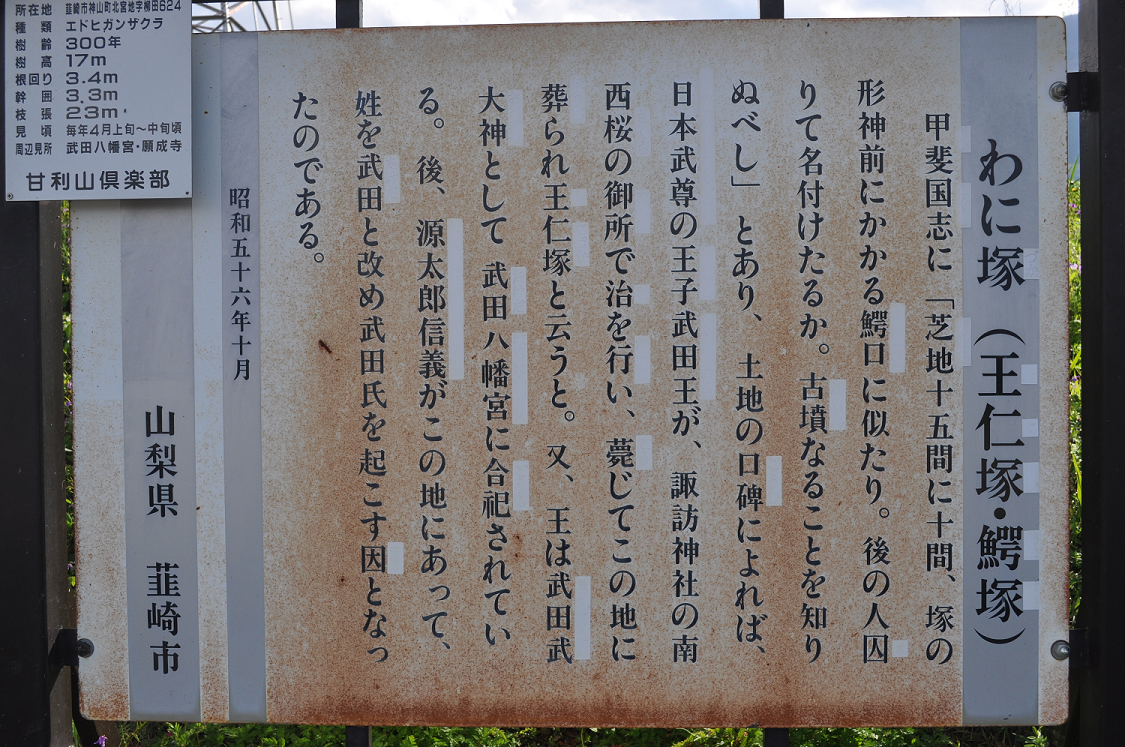 わに塚（王仁塚・鰐塚）
甲斐国志に「芝地十五間に十間、塚の
形神前にかかる鰐口に似たり。後の人囚
りて名付けたるか。古墳なることを知り
ぬべし」とあり、土地の口碑によれば、
日本武尊の王子武田王が、諏訪神社の南
西桜の御所で治を行い、薨じてこの地に
葬られ王仁塚と云うと。又、王は武田武
大神として武田八幡宮に合祀されてい
る。後、源太郎信義がこの地にあって、
姓を武田と改め武田氏を起こす因となっ
たのである。
昭和五十六年十月
山梨県　韮崎市
所在地 韮崎市神山町北宮地字柳田624
種類 エドヒガンザクラ
樹齢 300年
樹高 17m
根回り 3.4m
幹囲 3.3m
枝張 23m
見頃 毎年4月上旬～中旬頃
周辺見所 武田八幡宮・願成寺
甘利山倶楽部